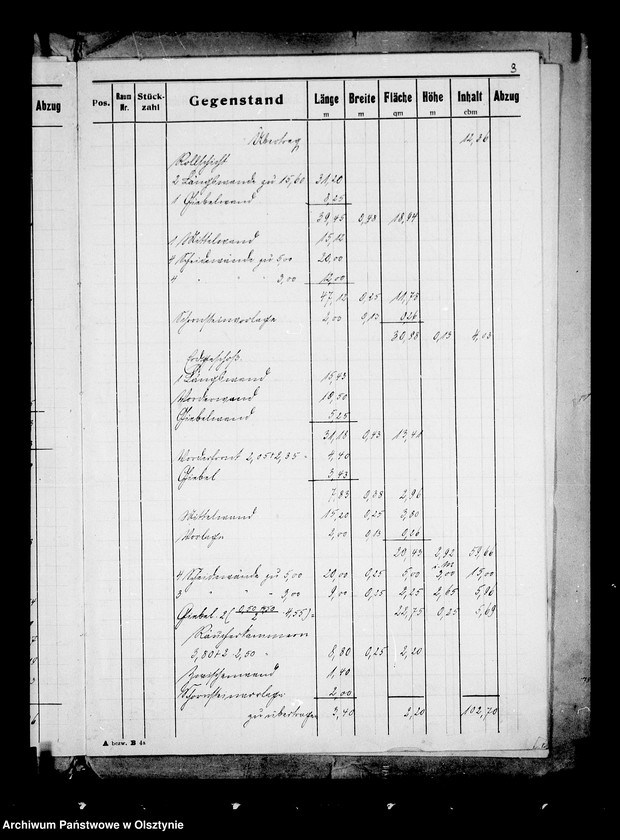 3
Abzug
Pos. Raum Nr. Stück- zahl Gegenstand Länge m Breite m Fläche qm Höhe m Inhalt cbm Abzug
Übertrag 12,36
Rollschicht
2 Längswände zu 15,60 31,20
1 Giebelwand 8,25
39,45 0,48 18,94
1 Mittelwand 15,12
4 Scheidewände zu 5,00 20,00
4 " " " 3,00 12,00
47,12 0,25 11,78
Schornsteinvorlage 2,00 0,13 0,26
30,98 0,13 4,03
Erdgeschoß.
1 Längswand 15,43
1 Vorderwand 10,50
Giebelwand 5,25
31,18 0,43 13,41
Vorderfront 2,05+2,35 = 4,40
Giebel 3,43
7,83 0,38 2,96
Mittelwand 15,20 0,25 3,80
Vorlage 2,00 0,13 0,26
20,43 2,92 59,66
4 Scheidewände zu 5,00 20,00 0,25 5,00 3,00 15,00
3 " " " 3,00 9,00 0,25 2,25 2,65 5,96
Giebel 2( 4,55)= 22,75 0,25 5,69
Räucherkammern
3,80+2 2,50 = 8,80 0,25 2,20
Zwischenwand 1,40
Schornsteinvorlage 2,00
zu übertragen 3,40 2,20 102,70
A bezw. B 4a
Archiwum Państwowe w Olsztynie